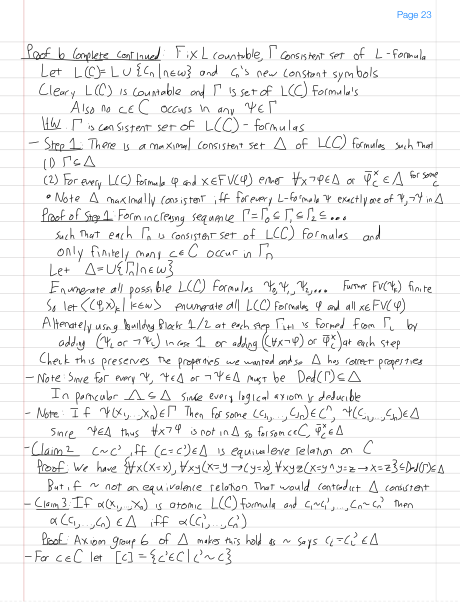 Page 23
Proof b Complete Continued: Fix L countable, Γ consistent set of L-formula
Let L(C) = L ∪ {Cn | n∈ω} and Cn's new constant symbols
Cleary L(C) is countable and Γ is set of L(C) formula's
Also no c∈C occurs in any Ψ∈Γ
HW: Γ is consistent set of L(C)-formulas
- Step 1: There is a maximal consistent set Δ of L(C) formulas such that
(1) Γ⊆Δ
(2) For every L(C) formula φ and x∈FV(φ) either ∀x¬φ∈Δ or φ̄ˣ_c∈Δ for some c
• Note Δ maximally consistent iff for every L-formula Ψ exactly one of Ψ,¬Ψ in Δ
Proof of Step 1: Form increasing sequence Γ=Γ₀⊆Γ₁⊆Γ₂⊆...
such that each Γn is consistent set of L(C) formulas and
only finitely many c∈C occur in Γn
Let Δ=∪{Γn | n∈ω}
Enumerate all possible L(C) formulas Ψ₀,Ψ₁,Ψ₂,... Further FV(Ψk) finite
So let ⟨(φ,x)k | k∈ω⟩ enumerate all L(C) formulas φ and all x∈FV(φ)
Alternately using building Blocks 1/2 at each step Γi+1 is formed from Γi by
adding (Ψk or ¬Ψk) in case 1 or adding ((∀x¬φ) or φ̄ˣ_c) at each step
Check this preserves the properties we wanted and so Δ has correct properties
- Note: Since for every Ψ, Ψ∈Δ or ¬Ψ∈Δ must be Ded(Γ)⊆Δ
In particular Λ⊆Δ since every logical axiom is deducible
- Note: If Ψ(x₁,...,xn)∈Γ Then for some (cj₁,...,cjn)∈Cⁿ, Ψ(cj₁,...,cjn)∈Δ
Since Ψ∈Δ thus ∀x¬φ is not in Δ so for some c∈C, φ̄ˣ_c∈Δ
- Claim 2 c~c' iff (c=c')∈Δ is equivalence relation on C
Proof: We have {∀x(x=x), ∀xy(x=y→y=x), ∀xyz(x=y∧y=z→x=z)}⊆Ded(Γ)⊆Δ
But if ~ not an equivalence relation that would contradict Δ consistent
- Claim 3: If α(x₁,...,xn) is atomic L(C) formula and c₁~c₁',...,cn~cn' then
α(c₁,...,cn)∈Δ iff α(c₁',...,cn')
Proof: Axiom group 6 of Δ makes this hold as ~ says ci=ci'∈Δ
- For c∈C let [c]={c'∈C | c'~c}